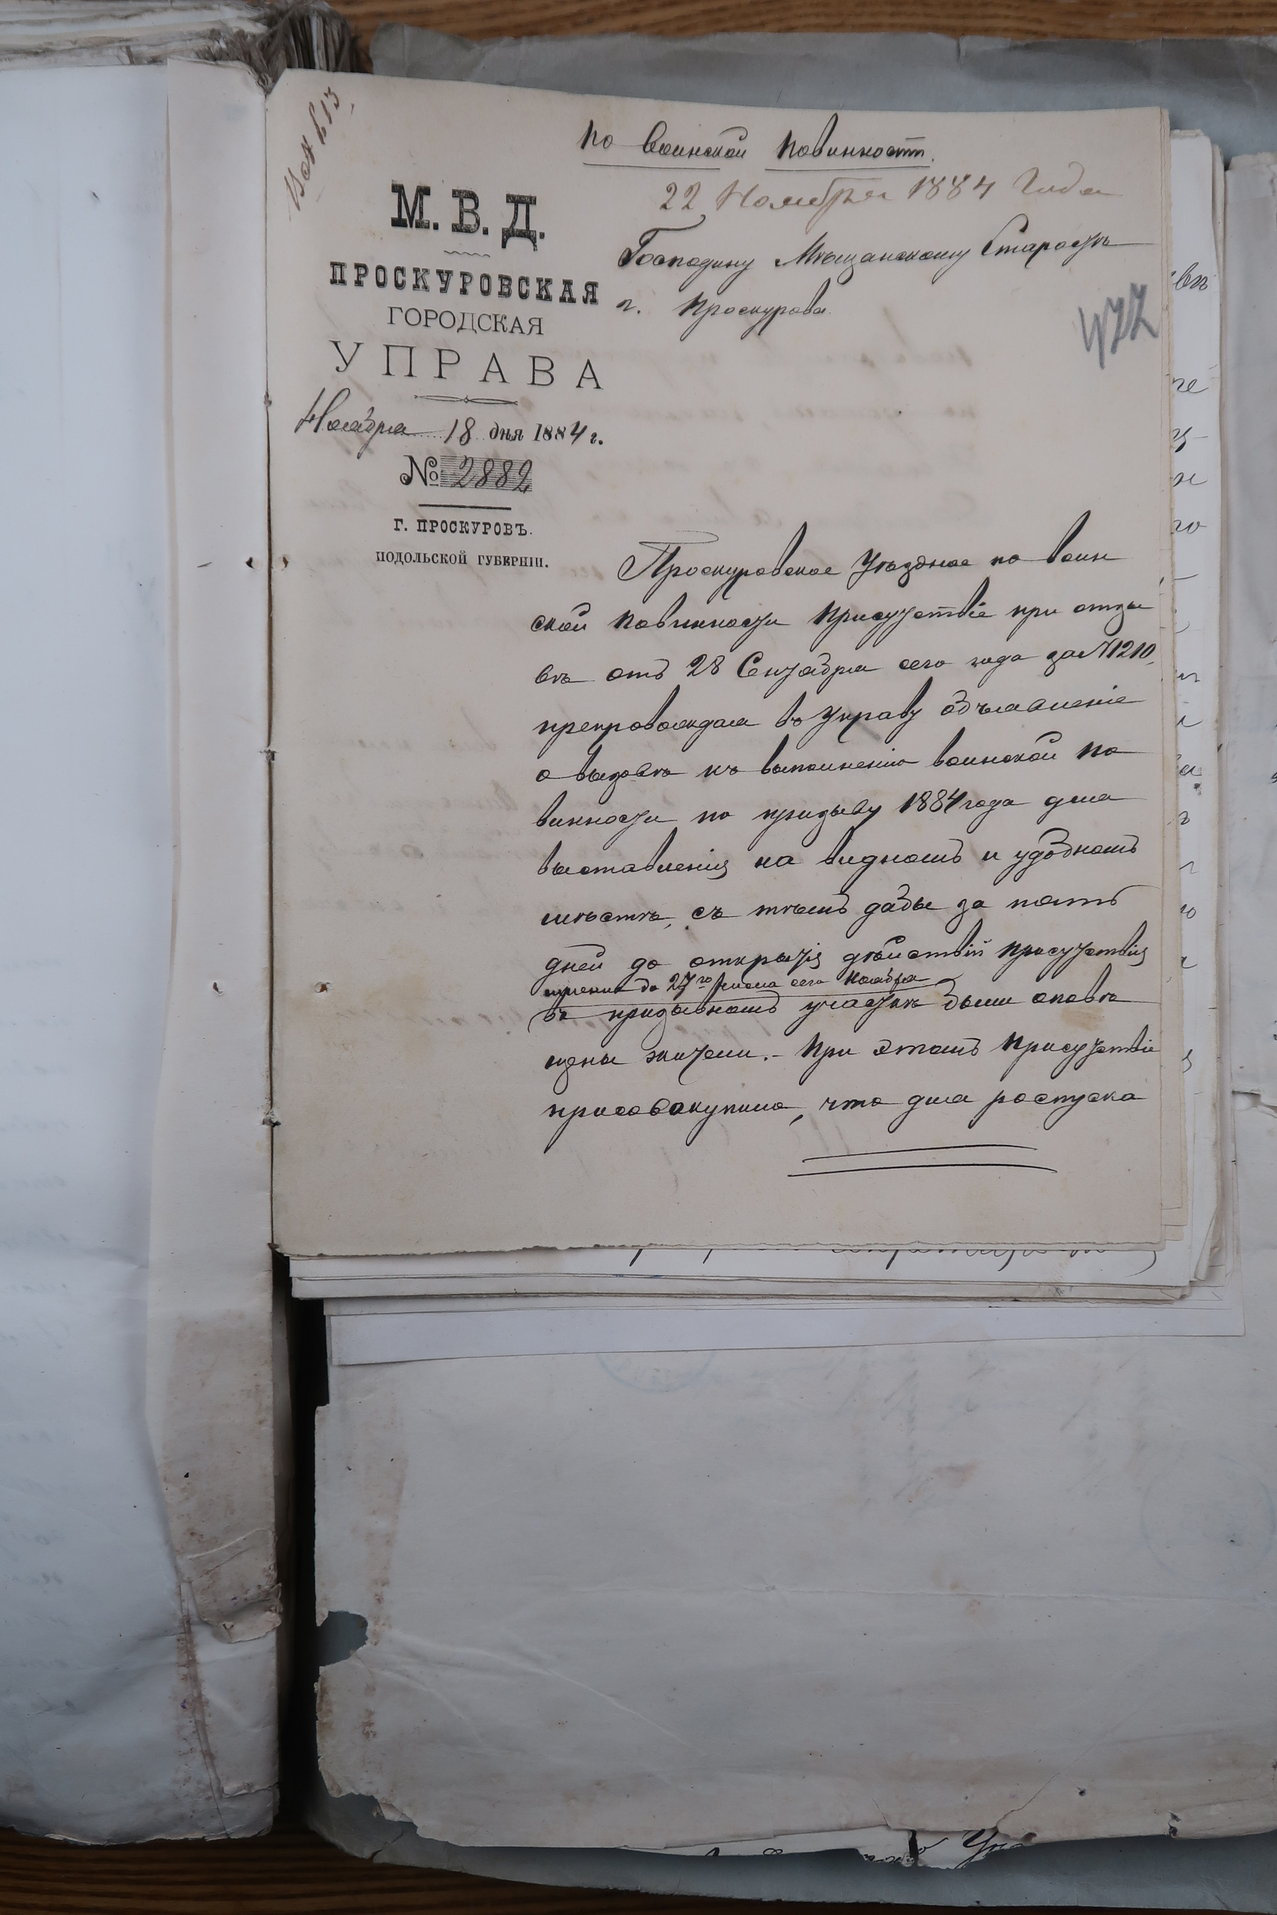 По воинской повинности.
22 Ноября 1884 Года
М. В. Д.
ПРОСКУРОВСКАЯ
ГОРОДСКАЯ
УПРАВА
Ноября 18 дня 1884 г.
№ 2882
Г. ПРОСКУРОВЪ.
ПОДОЛЬСКОЙ ГУБЕРНІИ.
Господину Мѣщанскому Старостѣ
г. Проскурова
Проскуровское Уѣздное по воин
ской повинности Присутствіе при отзы
вѣ отъ 28 Сентября сего года за № 1210,
препровождая въ Управу объявленіе
о вызовѣ къ выполненію воинской по
винности по призыву 1884 года для
выставленія на видномъ и удобномъ
мѣстѣ, съ тѣмъ дабы за пять
дней до открытія дѣйствій Присутствія
до 27го числа сего Ноября
въ призывномъ участкѣ были оповѣ
щены жители. - При этомъ Присутствіе
присовокупило, что для роспуска